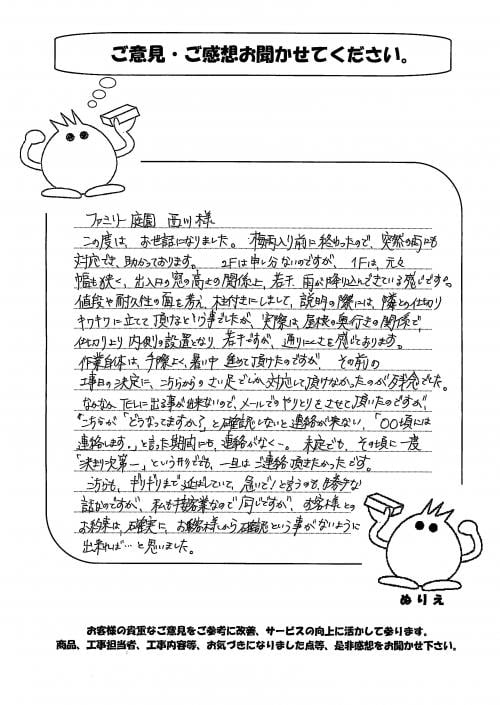 ご意見・ご感想お聞かせてください。
ファミリー庭園 西川様
この度は、お世話になりました。梅雨入り前に終わったので、突然の雨にも
対応でき、助かっております。2Fは申し分ないのですが、1Fは、元々
幅も狭く、出入口の窓の高さとの関係上、若干、雨が降り込んできている感じです。
値段や耐久性の面を考え、柱付きにしまして、説明の際には、隣との仕切り
キワキワに立てて頂けるという事でしたが、実際は屋根の奥行きの関係で、
仕切りより内側の設置となり、若干ですが、通りにくさを感じております。
作業自体は、手際よく、暑い中進めて頂けたのですが、その前の
工事日の決定に、こちらからのさい足でしか対応して頂けなかったのが残念でした。
なかなかTELに出る事が出来ないので、メールでのやりとりをさせて頂いたのですが、
こちらが「どうなってますか?」と確認しないと連絡が来ない、「〇〇頃には
連絡します。」と言った期間にも、連絡がなく…。未定でも、その頃に一度
「決まり次第…」という形ででも、一旦はご連絡頂きたかったです。
こちらも、ギリギリまで延ばしていて、急いで!と言うのも、勝手な
話なのですが、私も接客業なので同じですが、お客様との
お約束は、確実に、お客様から確認という事がないように
出来れば…と思いました。
ぬりえ
お客様の貴重なご意見をご参考に改善、サービスの向上に活かして参ります。
商品、工事担当者、工事内容等、お気づきになりました点等、是非感想をお聞かせ下さい。